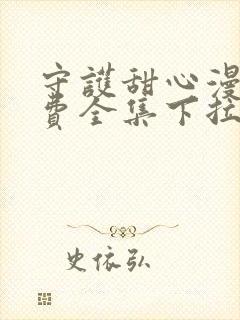 守護甜心漫
費全集下拉
史依弘